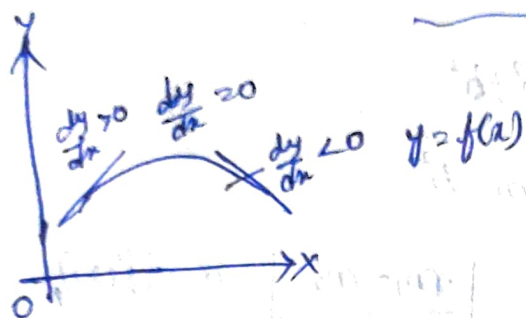 Y
dy/dx > 0 dy/dx = 0 dy/dx < 0 y = f(x)
O X